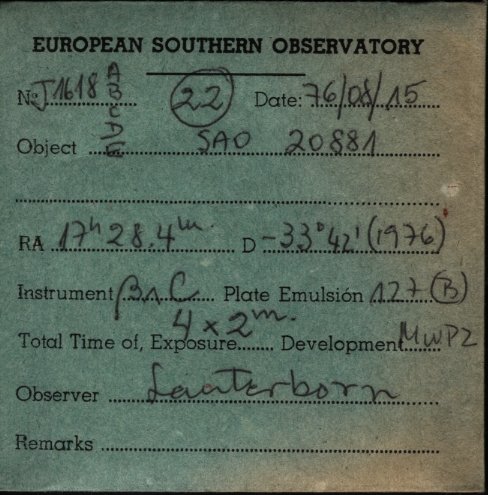 EUROPEAN SOUTHERN OBSERVATORY
No J1618 ABCDE 22 Date: 76/08/15
Object SAO 20881
RA 17h 28.4m D -33°42' (1976)
Instrument Plate Emulsión 127 (B)
4 x 2m.
Total Time of, Exposure Development MWP2
Observer Lauterborn
Remarks